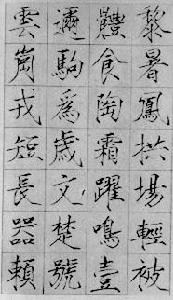 黎晷鳳拱場輕被
體食陶霜躍鳴壹
邇駒爲歲文楚號
雲崗戎短長器賴